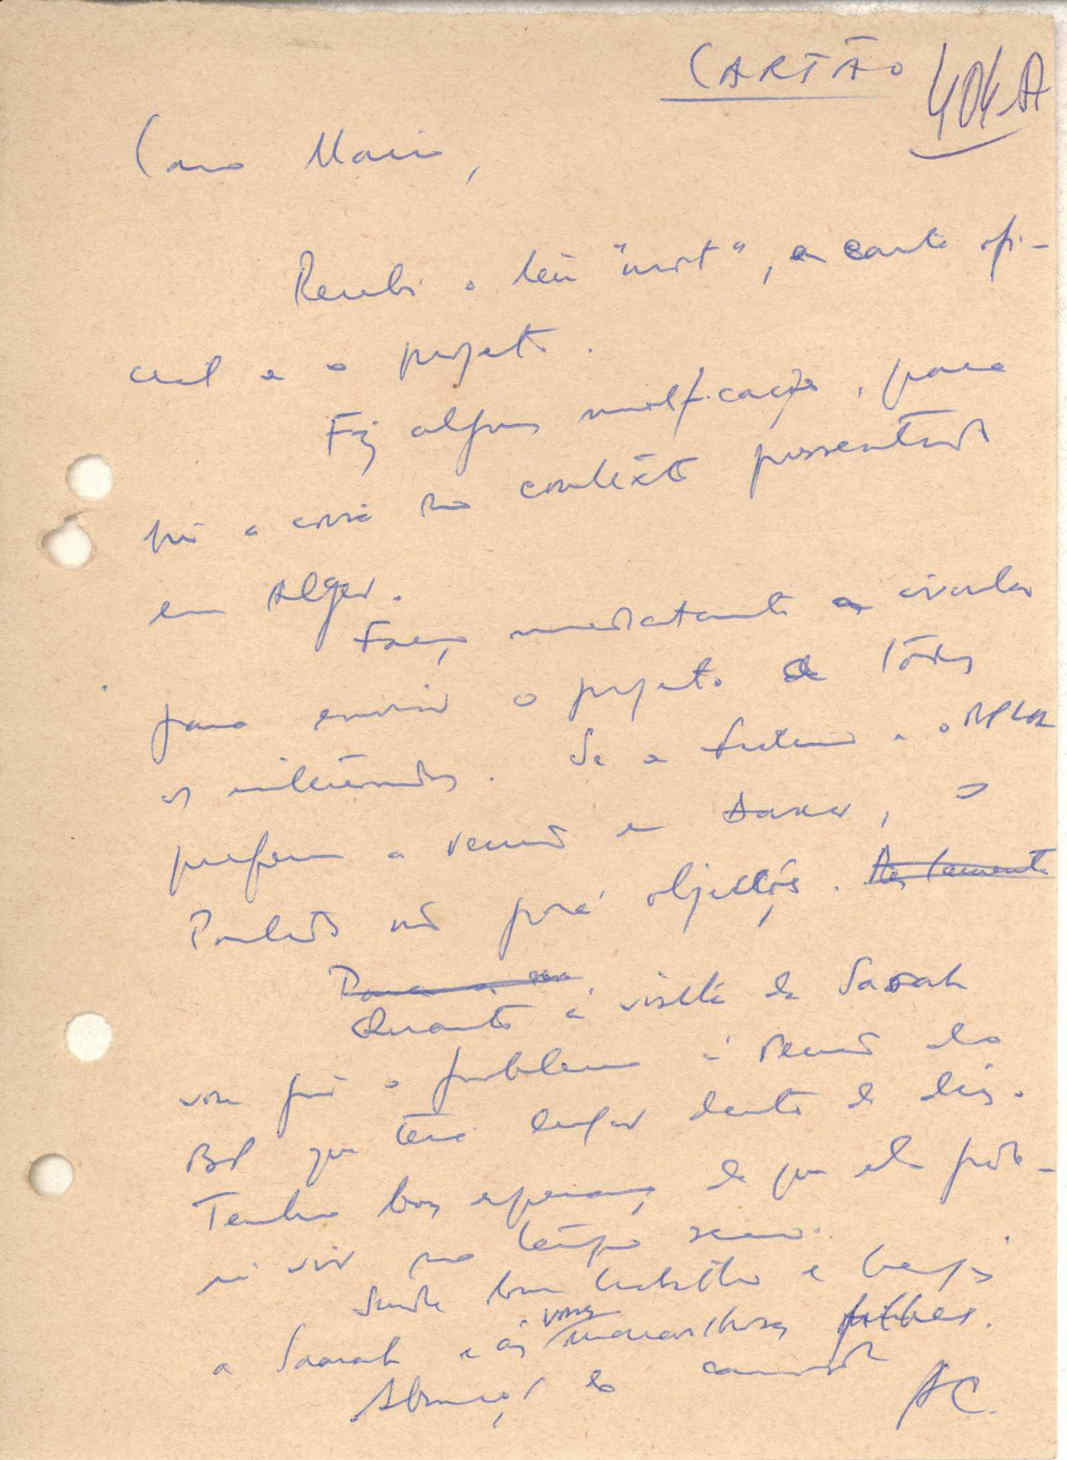 CARTÃO 404-A
Caro Mário,
Recebi o teu "mot", a carta ofi-
cial e o projeto.
Fiz algumas modificações, para
pôr a coisa no contexto
em Alger.
Faço imediatamente a circular
para enviar o projeto a todos
os interessados. Se a e o
preferem a reunião em Dakar, o
não porá objecções.
Quanto à visita da Sarah
vou pôr o problema à reunião do
BP que terá lugar dentro de dias.
Tenho boas esperanças de que ela pode-
rá vir no tempo seco.
Saúde bom trabalho e beijos
a Sarah e às vossas maravilhosas filhas.
Abraço do camarada
AC.